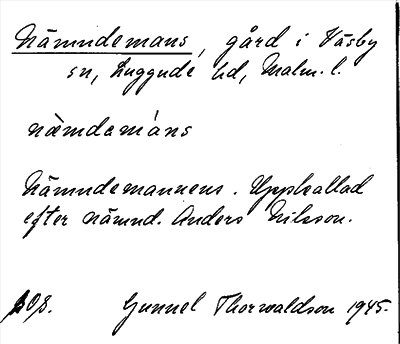 Nämndemans, gård i Väsby
sn, Luggude hd, Malm. l.
næmdemáns
Nämndemannens. Uppkallad
efter nämnd. Anders Nilsson.
Gunnel Thorwaldson 1945.